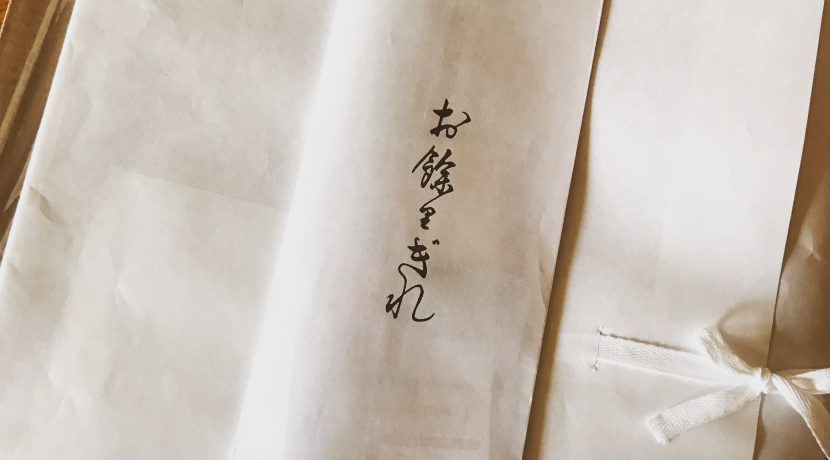 お餘里ぎれ